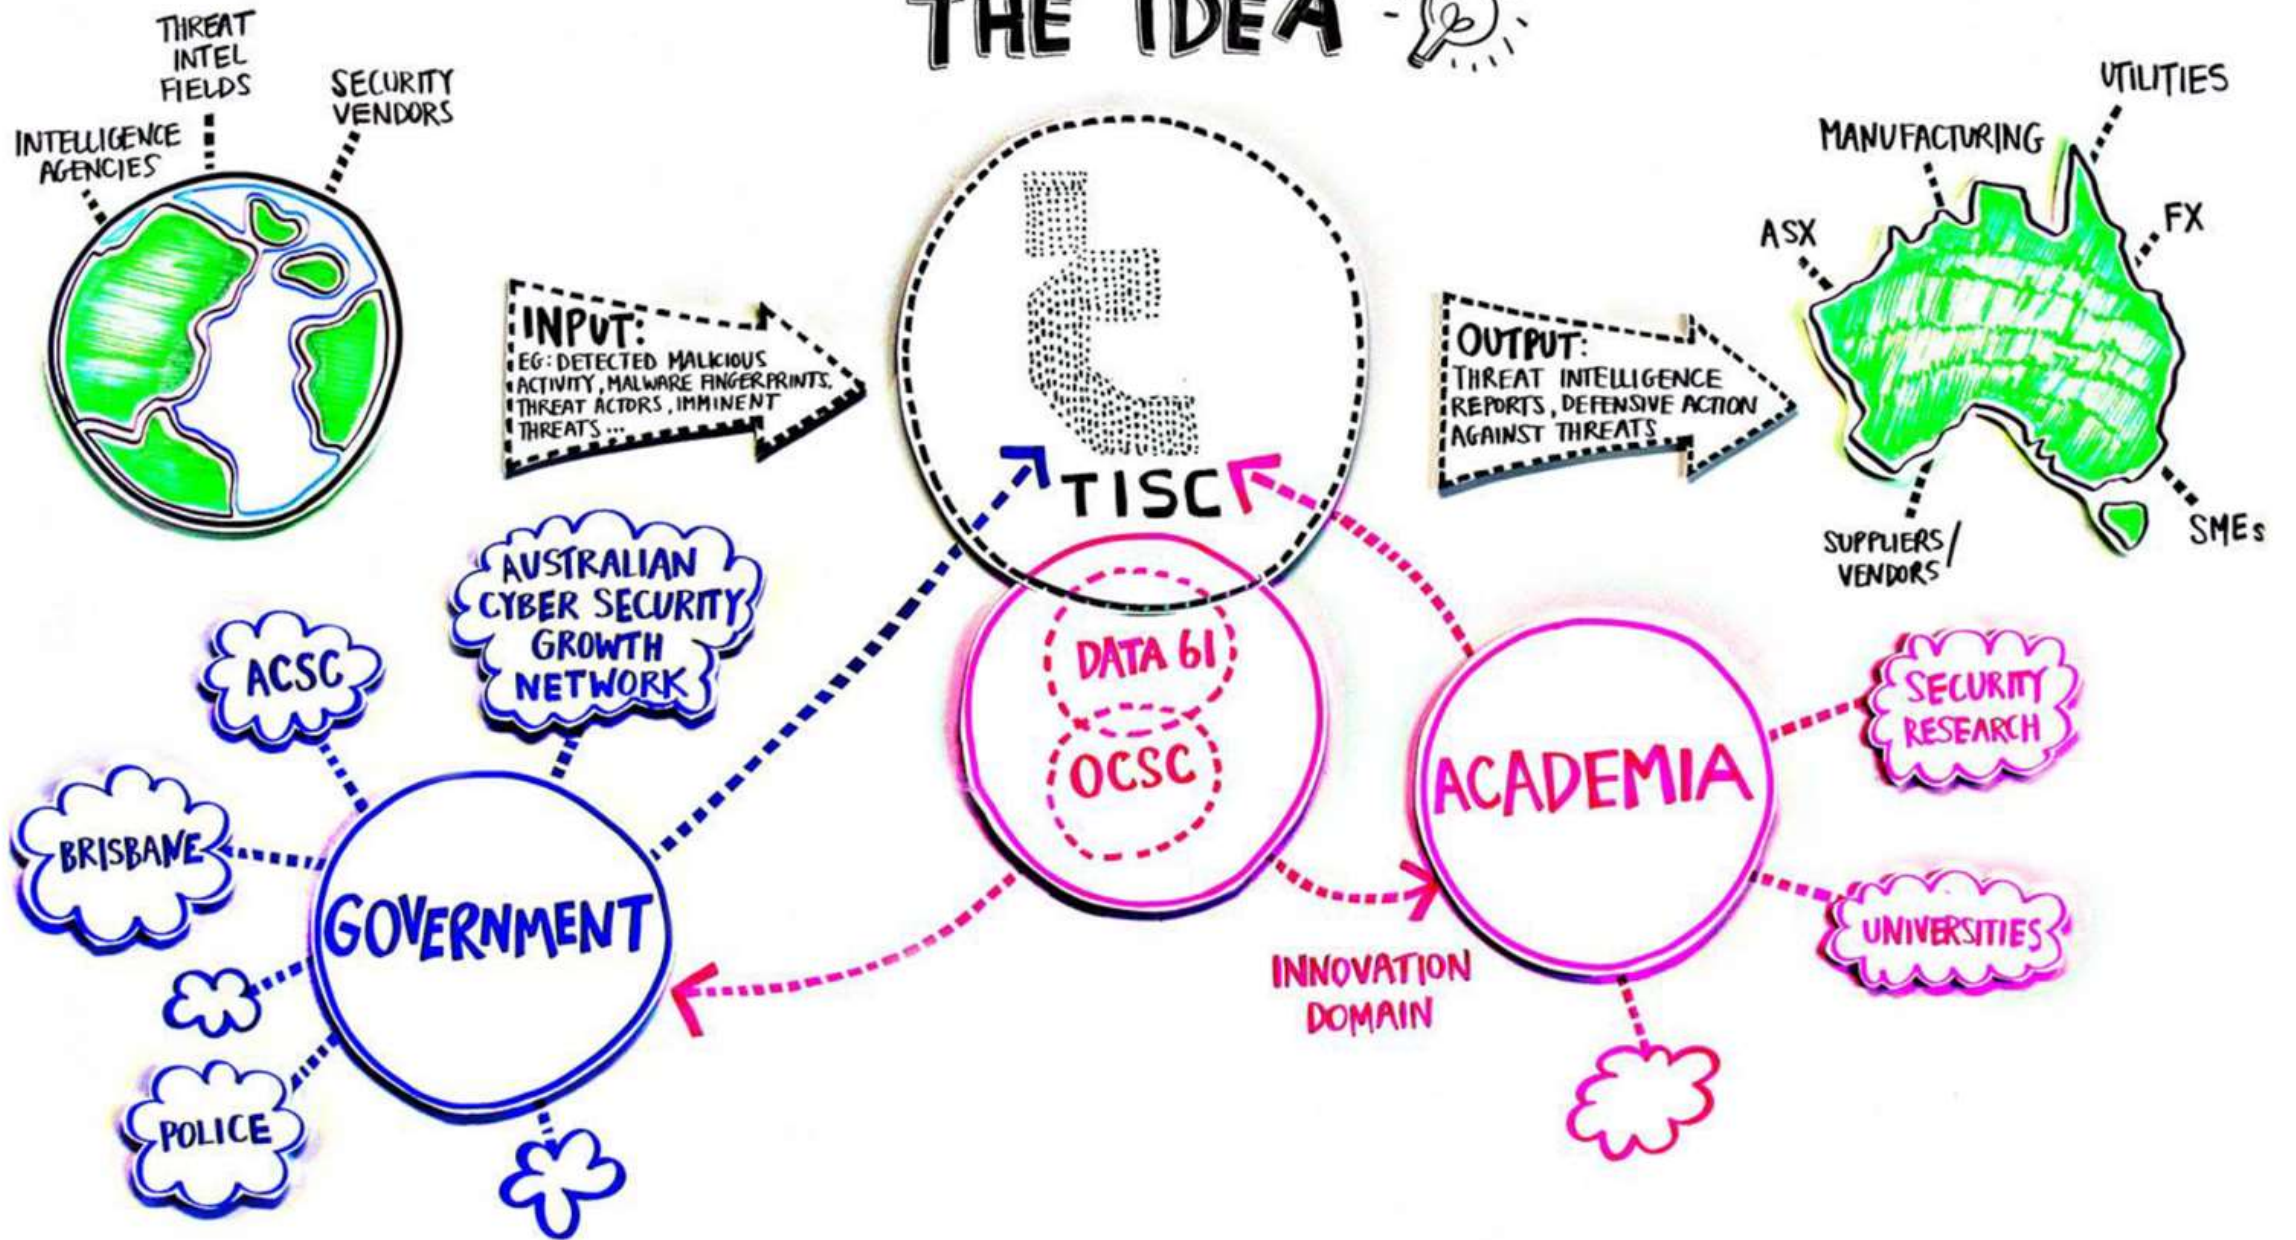 THE IDEA
THREAT
INTEL
FIELDS
SECURITY
VENDORS
INTELLIGENCE
AGENCIES
INPUT:
EG: DETECTED MALICIOUS
ACTIVITY, MALWARE FINGERPRINTS,
THREAT ACTORS, IMMINENT
THREATS...
TISC
OUTPUT:
THREAT INTELLIGENCE
REPORTS, DEFENSIVE ACTION
AGAINST THREATS
UTILITIES
MANUFACTURING
ASX
FX
SUPPLIERS/
VENDORS
SMEs
AUSTRALIAN
CYBER SECURITY
GROWTH
NETWORK
ACSC
BRISBANE
GOVERNMENT
POLICE
DATA 61
OCSC
INNOVATION
DOMAIN
ACADEMIA
SECURITY
RESEARCH
UNIVERSITIES